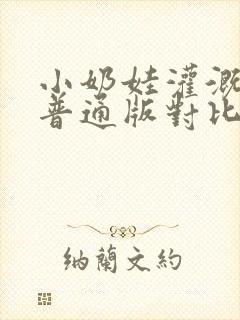 小奶娃灌溉
普通版對比
纳蘭文約